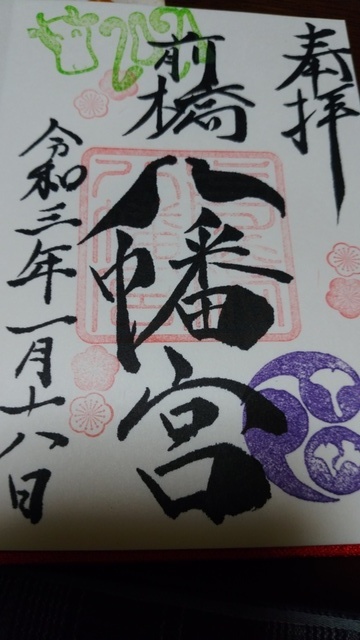 奉拝
前橋
八幡宮
令和三年一月十八日